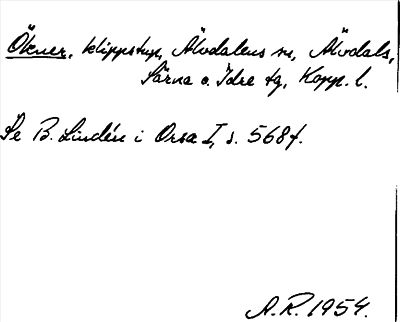 Ökner, klippstup, Älvdalens sn, Älvdals,
Särna o. Idre tg, Kopp. l.
Se B. Lindén i Orsa I, s. 568 f.
A.R. 1954.